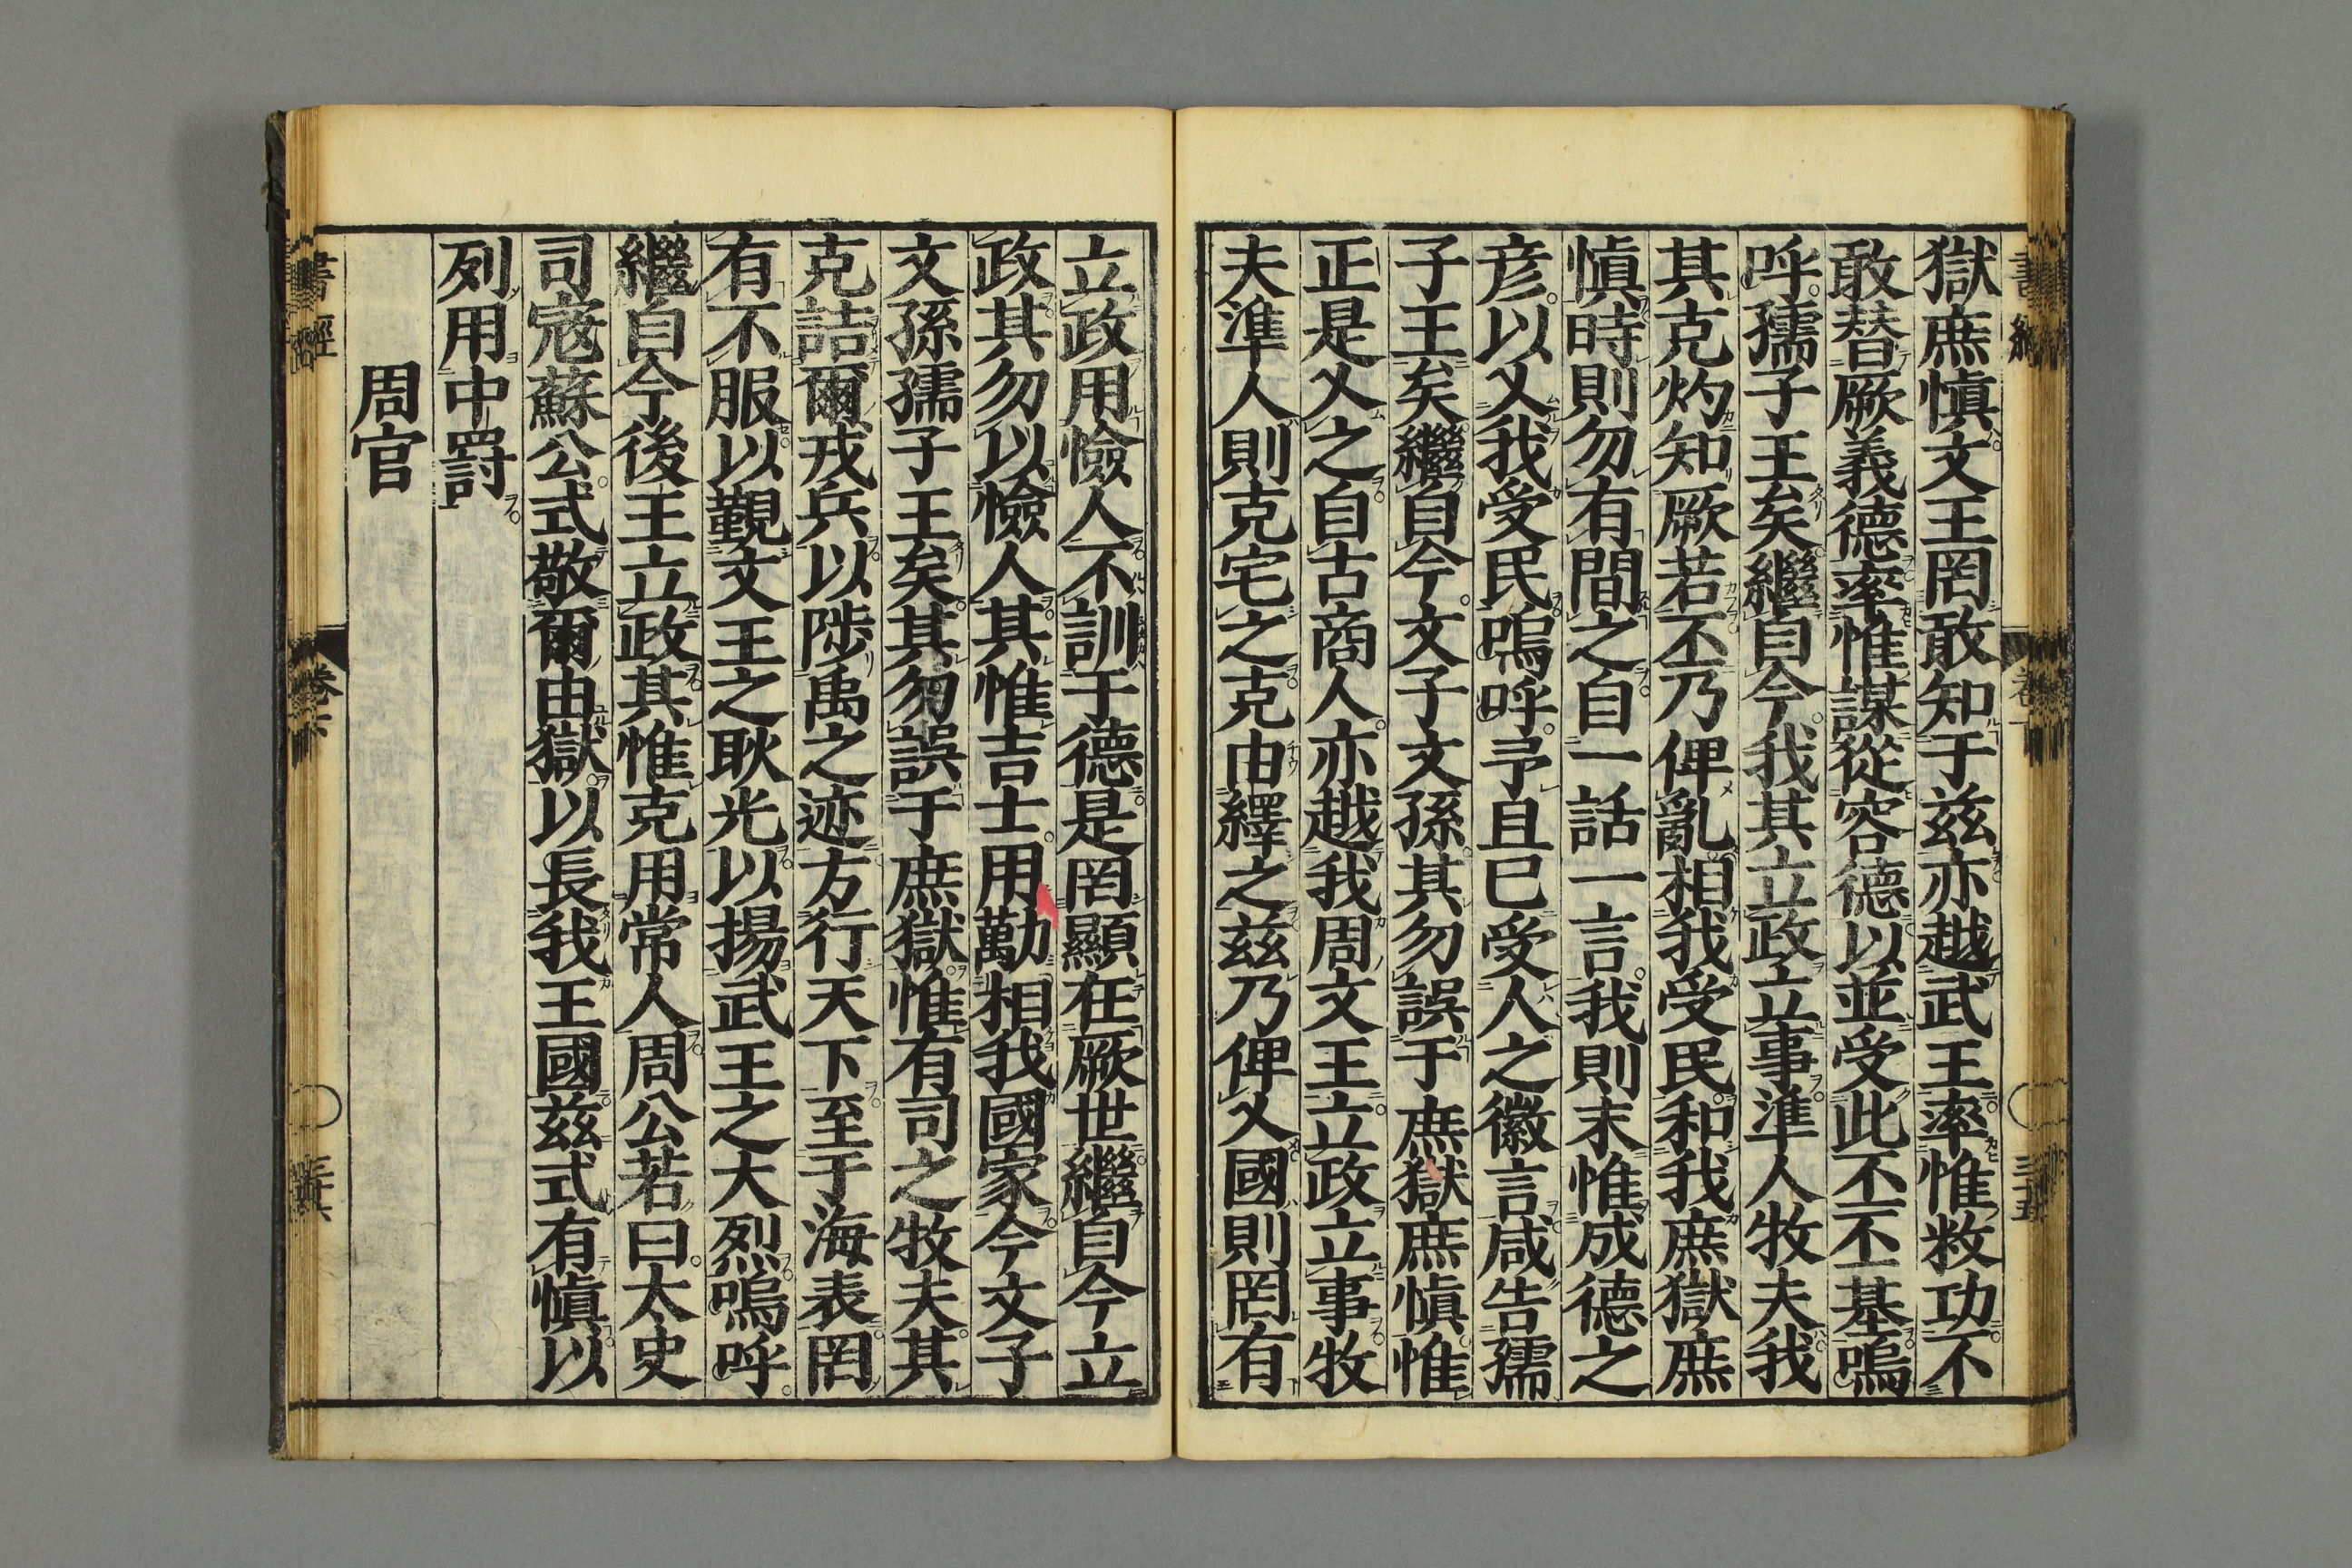 獄庶愼文王罔敢知于兹亦越武王率惟敉功不
敢替厥義德率惟謀從容德以並受此丕丕基嗚
呼孺子王矣繼自今我其立政立事準人牧夫我
其克灼知厥若丕乃俾亂相我受民和我庶獄庶
愼時則勿有間之自一話一言我則末惟成德之
彦以乂我受民嗚呼予旦已受人之徽言咸告孺
子王矣繼自今文子文孫其勿誤于庶獄庶愼惟
正是乂之自古商人亦越我周文王立政立事牧
夫準人則克宅之克由繹之兹乃俾乂國則罔有
立政用憸人不訓于德是罔顯在厥世繼自今立
政其勿以憸人其惟吉士用勱相我國家今文子
文孫孺子王矣其勿誤于庶獄惟有司之牧夫其
克詰爾戎兵以陟禹之迹方行天下至于海表罔
有不服以覲文王之耿光以揚武王之大烈嗚呼
繼自今後王立政其惟克用常人周公若曰太史
司寇蘇公式敬爾由獄以長我王國兹式有愼以
列用中罰
周官
書經
卷六